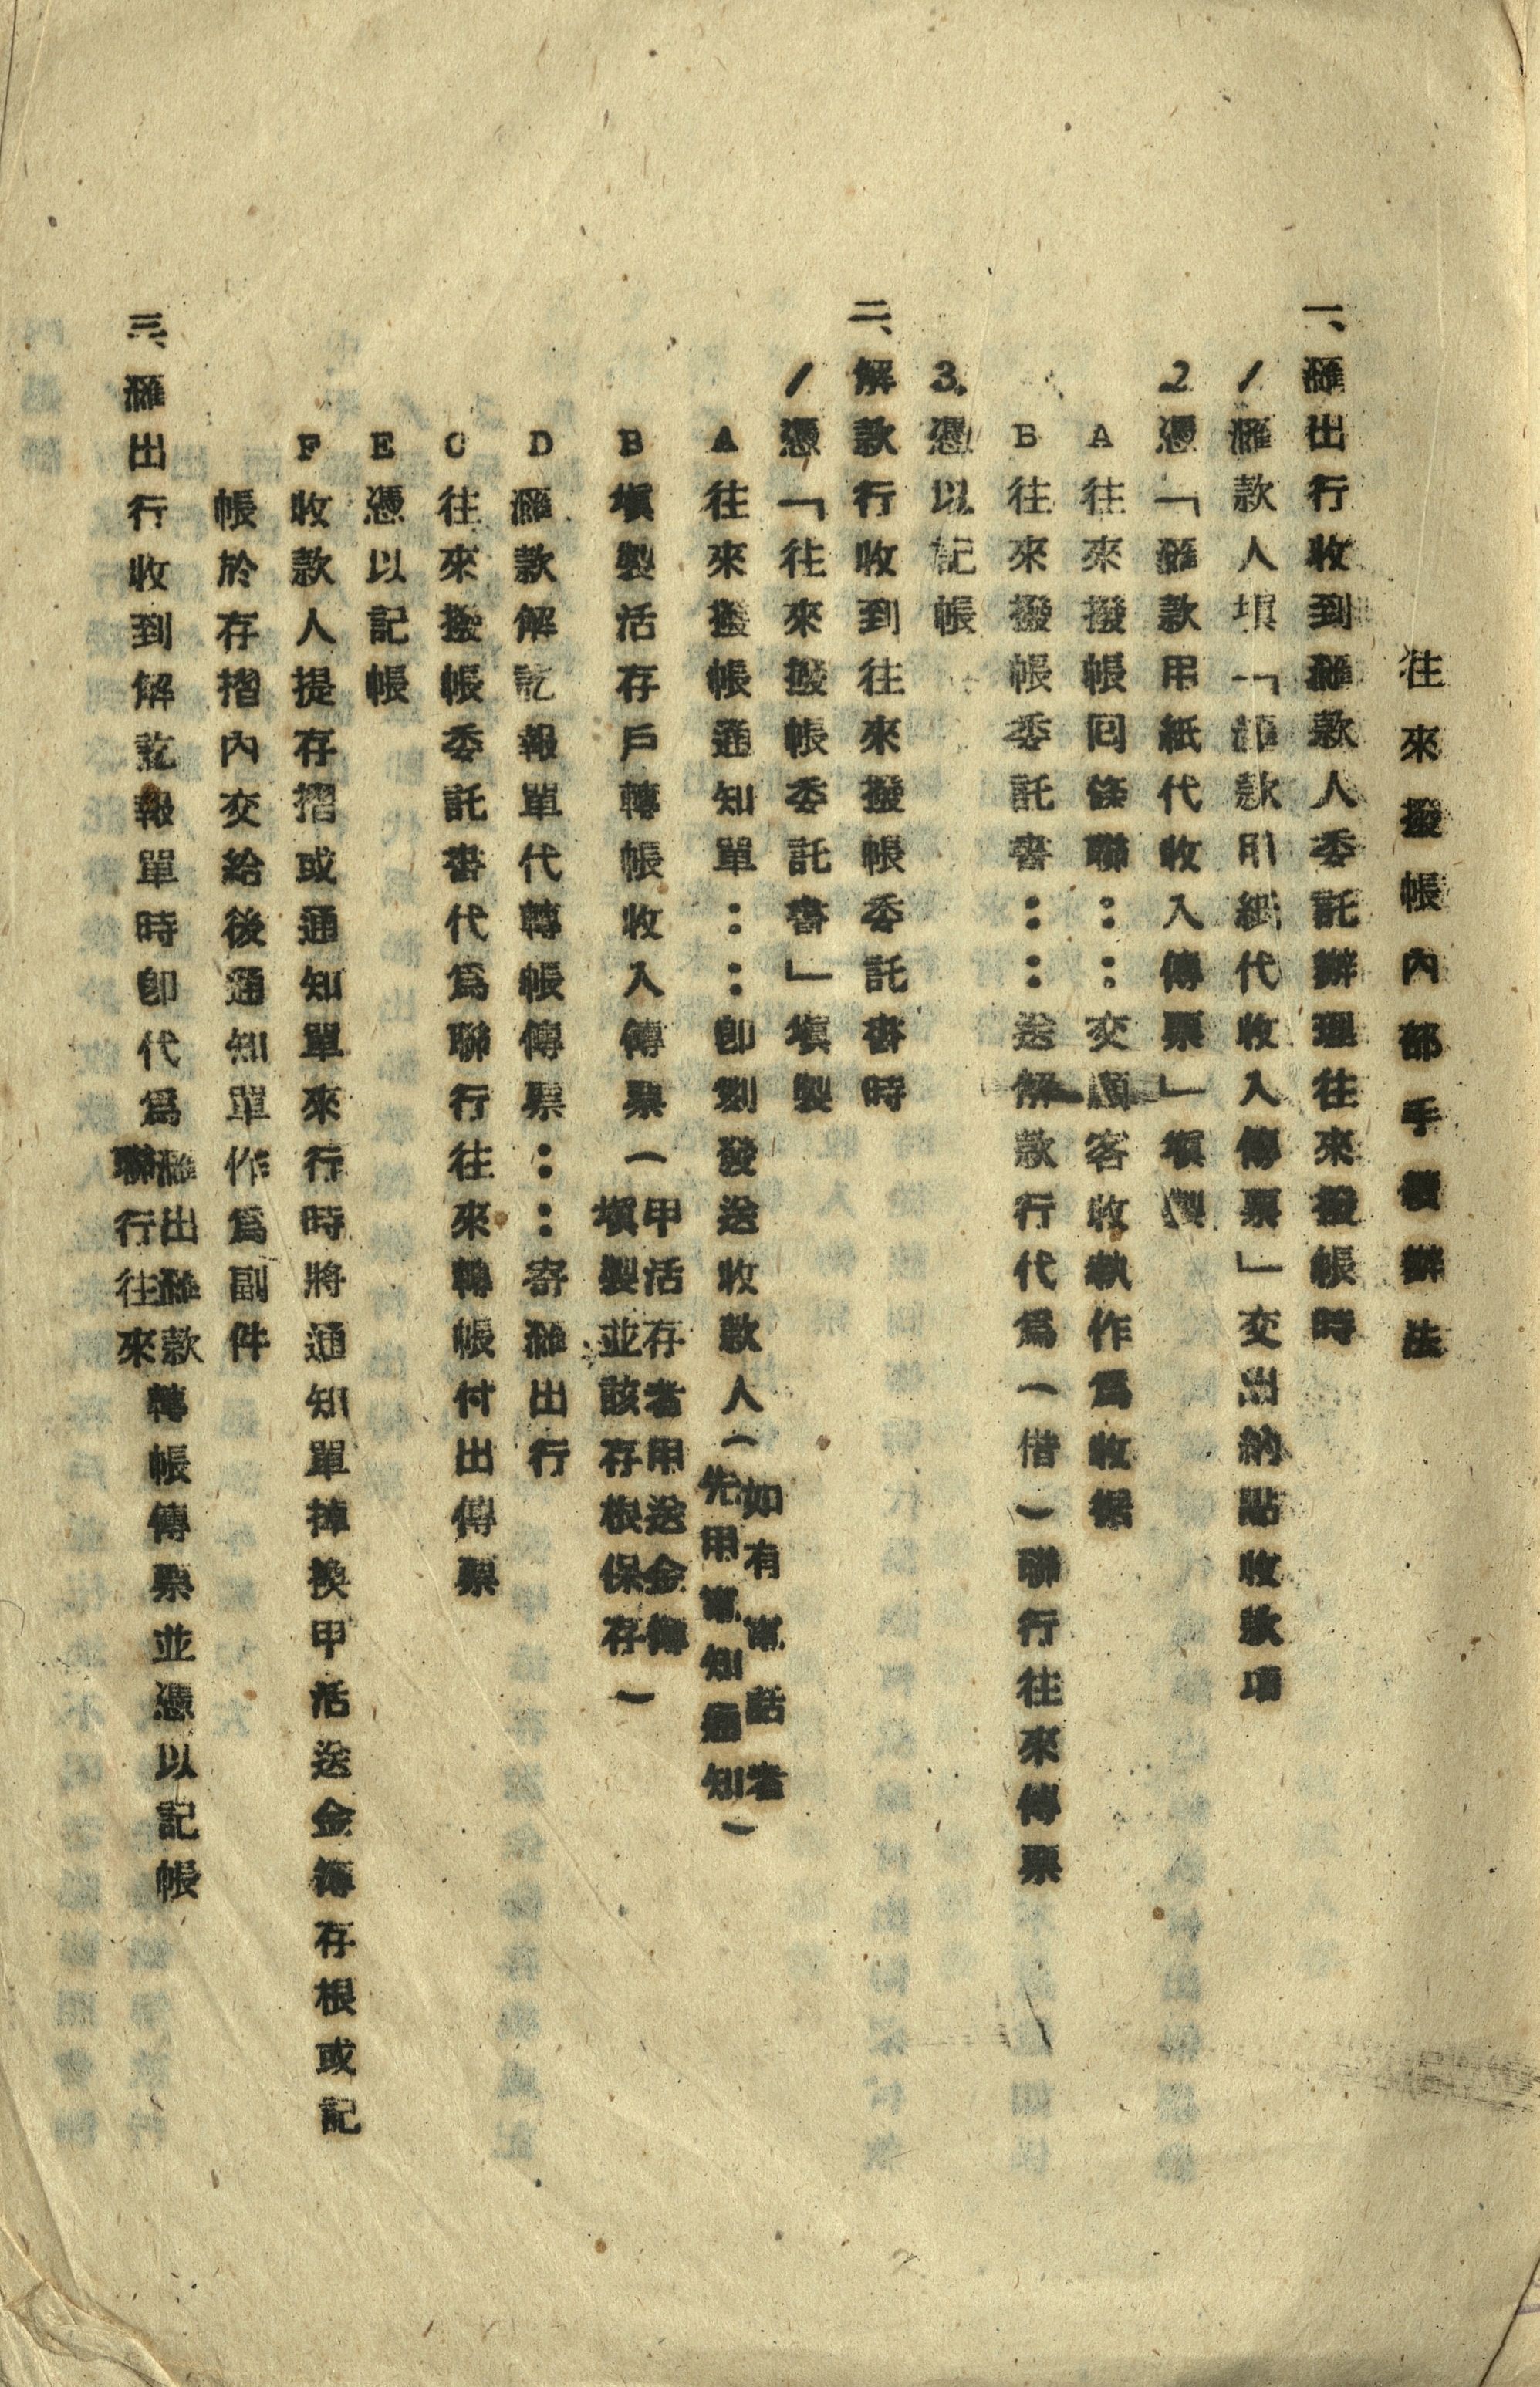 往來撥帳內部手續辦法
一、滙出行收到滙款人委託辦理往來撥帳時
1滙款人填「滙款用紙代收入傳票」交出納點收款項
2憑「滙款用紙代收入傳票」填製
A往來撥帳回條聯::交顧客收執作爲收据
B往來撥帳委託書::送解款行代爲(借)聯行往來傳票
3.憑以記帳
二、解款行收到往來撥帳委託書時
1憑「往來撥帳委託書」填製
A往來撥帳通知單::卽刻發送收款人(如有電話者先用電知通知)
B填製活存戶轉帳收入傳票(甲活存者用送金簿填製並該存根保存)
D滙款解訖報單代轉帳傳票::寄滙出行
C往來撥帳委託書代爲聯行往來轉帳付出傳票
E憑以記帳
F收款人提存摺或通知單來行時將通知單掉換甲活送金簿存根或記
帳於存摺內交給後通知單作爲副件
三、滙出行收到解訖報單時卽代爲滙出滙款聯行往來轉帳傳票並憑以記帳